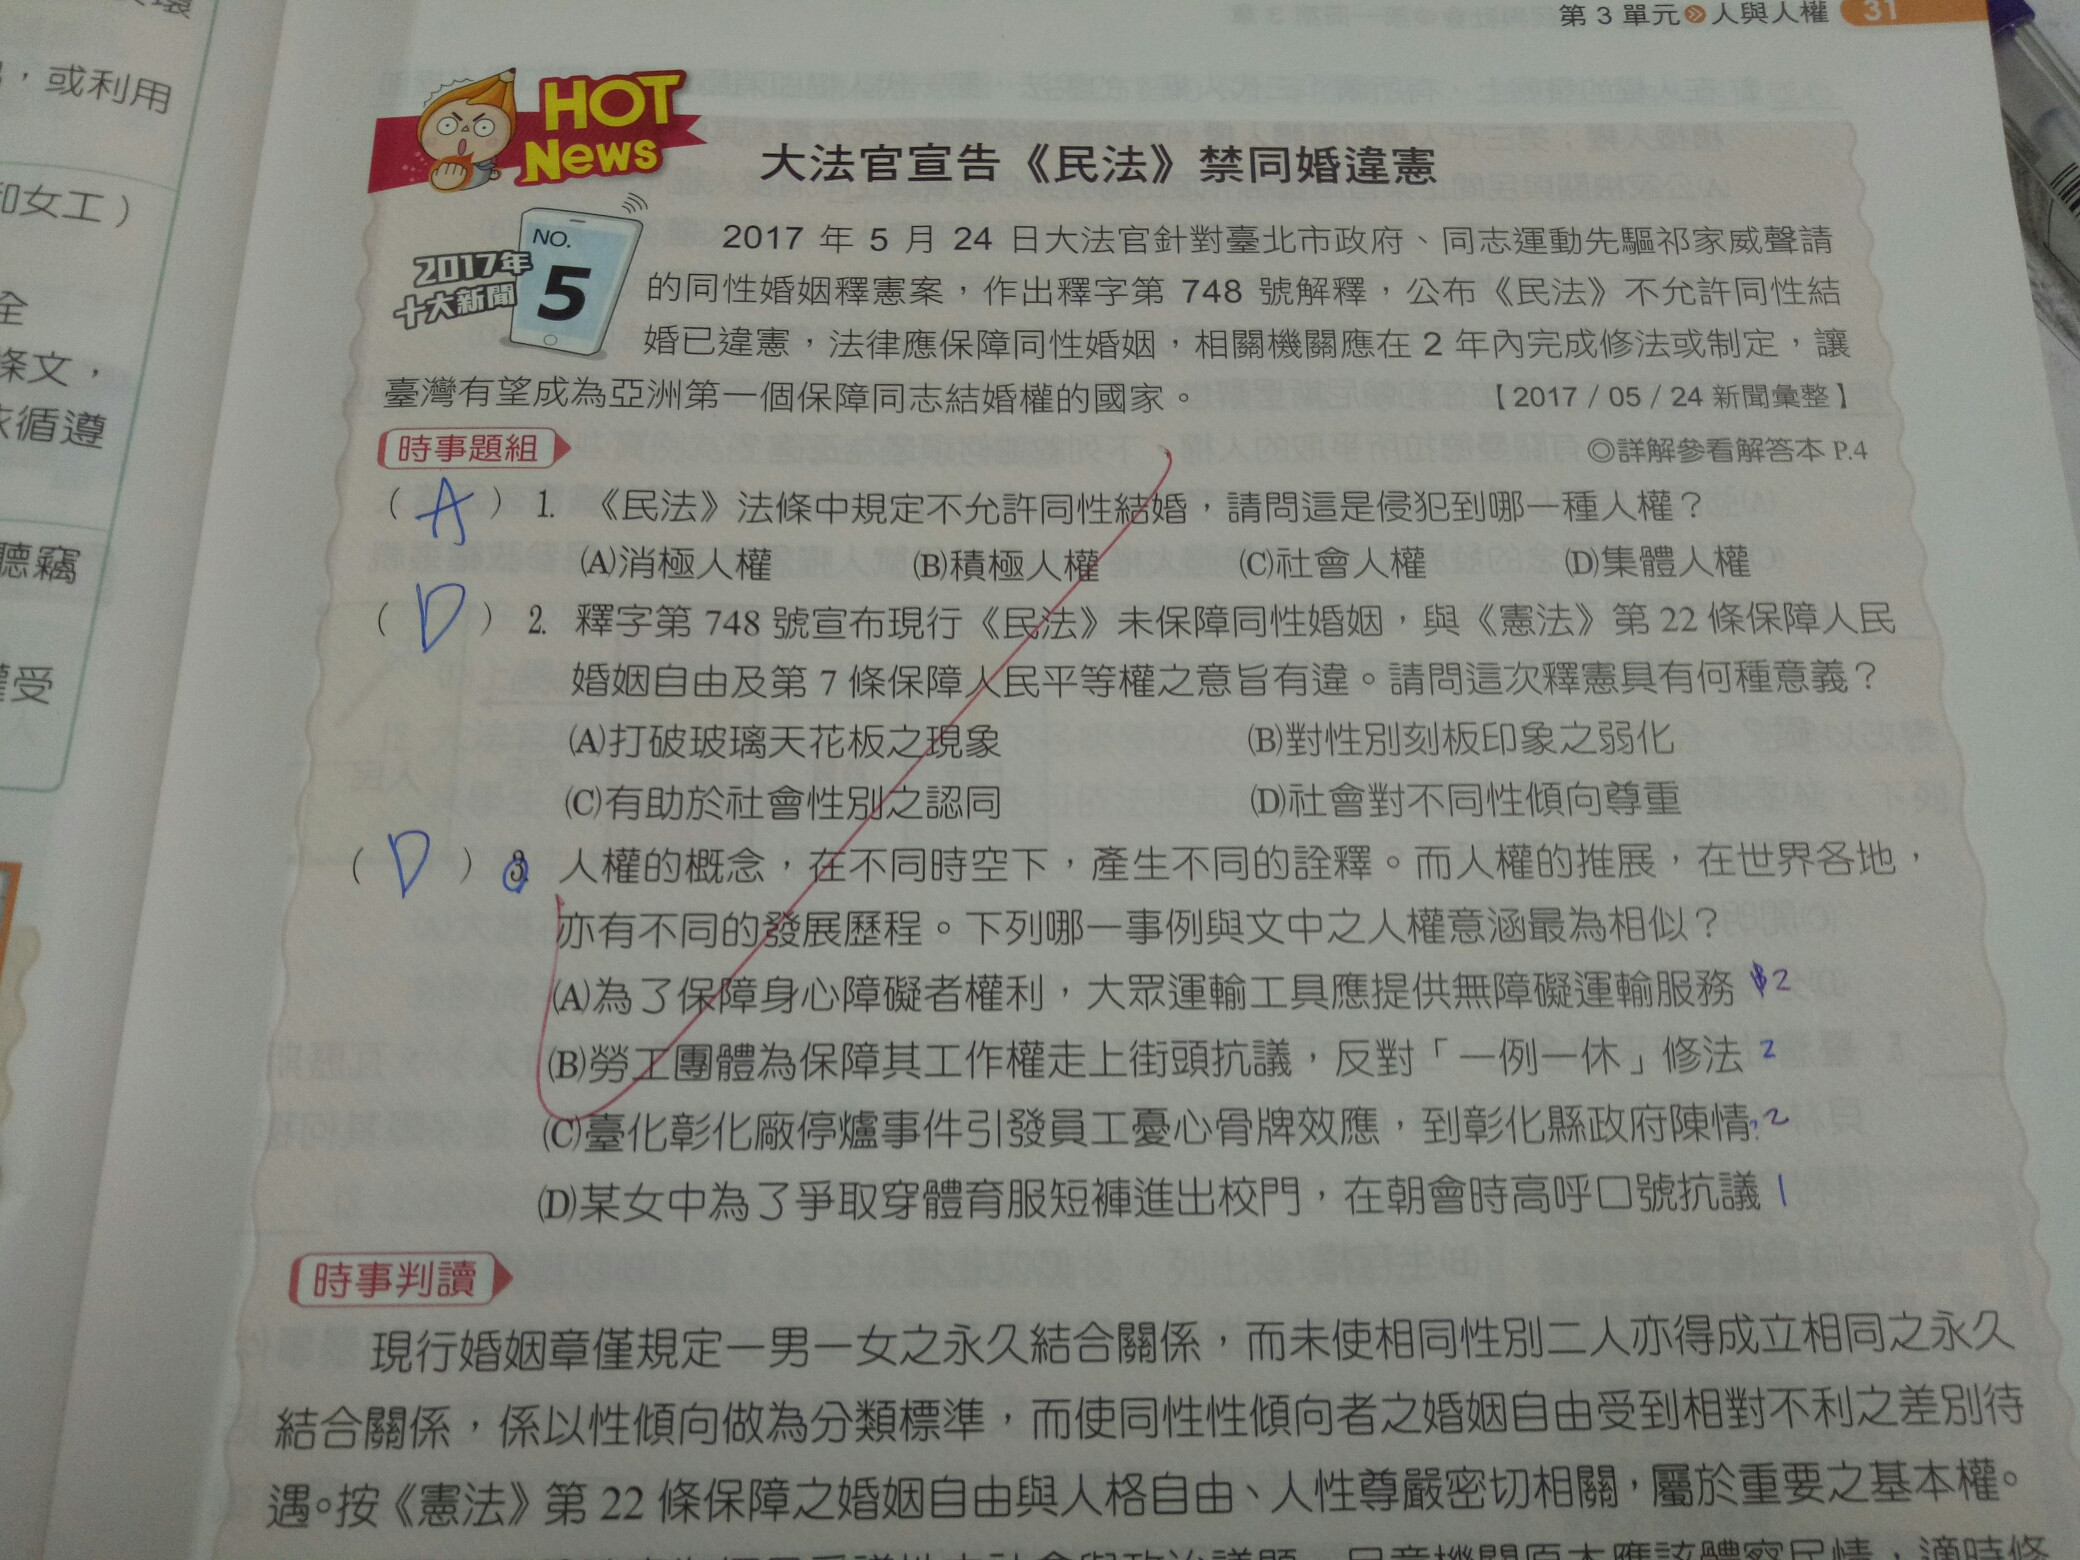 第3單元 人與人權 31
，或利用
和女工）
全
條文，
依循遵
聽竊
權受
HOT
News
大法官宣告《民法》禁同婚違憲
2017年
十大新聞
NO.
5
2017 年 5 月 24 日大法官針對臺北市政府、同志運動先驅祁家威聲請
的同性婚姻釋憲案，作出釋字第 748 號解釋，公布《民法》不允許同性結
婚已違憲，法律應保障同性婚姻，相關機關應在 2 年內完成修法或制定，讓
臺灣有望成為亞洲第一個保障同志結婚權的國家。 【2017 / 05 / 24 新聞彙整】
時事題組
◎詳解參看解答本 P.4
（ A ）1. 《民法》法條中規定不允許同性結婚，請問這是侵犯到哪一種人權？
(A)消極人權 (B)積極人權 (C)社會人權 (D)集體人權
（ D ）2. 釋字第 748 號宣布現行《民法》未保障同性婚姻，與《憲法》第 22 條保障人民
婚姻自由及第 7 條保障人民平等權之意旨有違。請問這次釋憲具有何種意義？
(A)打破玻璃天花板之現象 (B)對性別刻板印象之弱化
(C)有助於社會性別之認同 (D)社會對不同性傾向尊重
（ D ）3. 人權的概念，在不同時空下，產生不同的詮釋。而人權的推展，在世界各地，
亦有不同的發展歷程。下列哪一事例與文中之人權意涵最為相似？
(A)為了保障身心障礙者權利，大眾運輸工具應提供無障礙運輸服務 2
(B)勞工團體為保障其工作權走上街頭抗議，反對「一例一休」修法 2
(C)臺化彰化廠停爐事件引發員工憂心骨牌效應，到彰化縣政府陳情 2
(D)某女中為了爭取穿體育服短褲進出校門，在朝會時高呼口號抗議 1
時事判讀
現行婚姻章僅規定一男一女之永久結合關係，而未使相同性別二人亦得成立相同之永久
結合關係，係以性傾向做為分類標準，而使同性性傾向者之婚姻自由受到相對不利之差別待
遇。按《憲法》第 22 條保障之婚姻自由與人格自由、人性尊嚴密切相關，屬於重要之基本權。